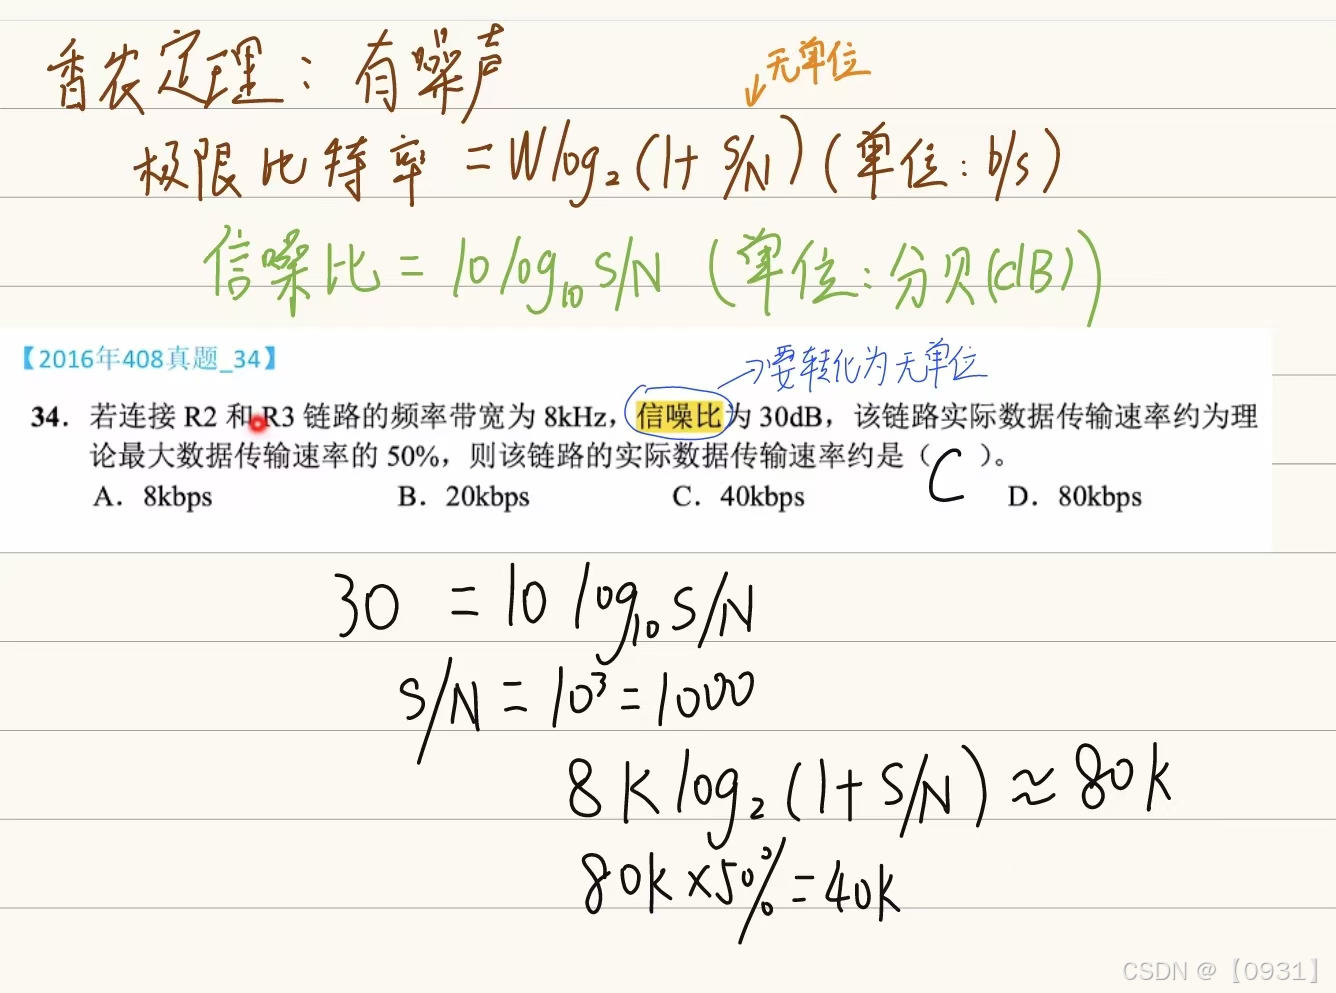 香农定理：有噪声
无单位
极限比特率 = Wlog₂(1+ S/N)(单位：b/s)
信噪比 = 10 log₁₀ S/N (单位：分贝(dB))
【2016年408真题_34】
要转化为无单位
34. 若连接 R2 和 R3 链路的频率带宽为 8kHz，信噪比为 30dB，该链路实际数据传输速率约为理
论最大数据传输速率的 50%，则该链路的实际数据传输速率约是（ C ）。
A. 8kbps B. 20kbps C. 40kbps D. 80kbps
30 = 10 log₁₀ S/N
S/N = 10³ = 1000
8K log₂ (1+ S/N) ≈ 80k
80k ×50% = 40k
CSDN @【0931】